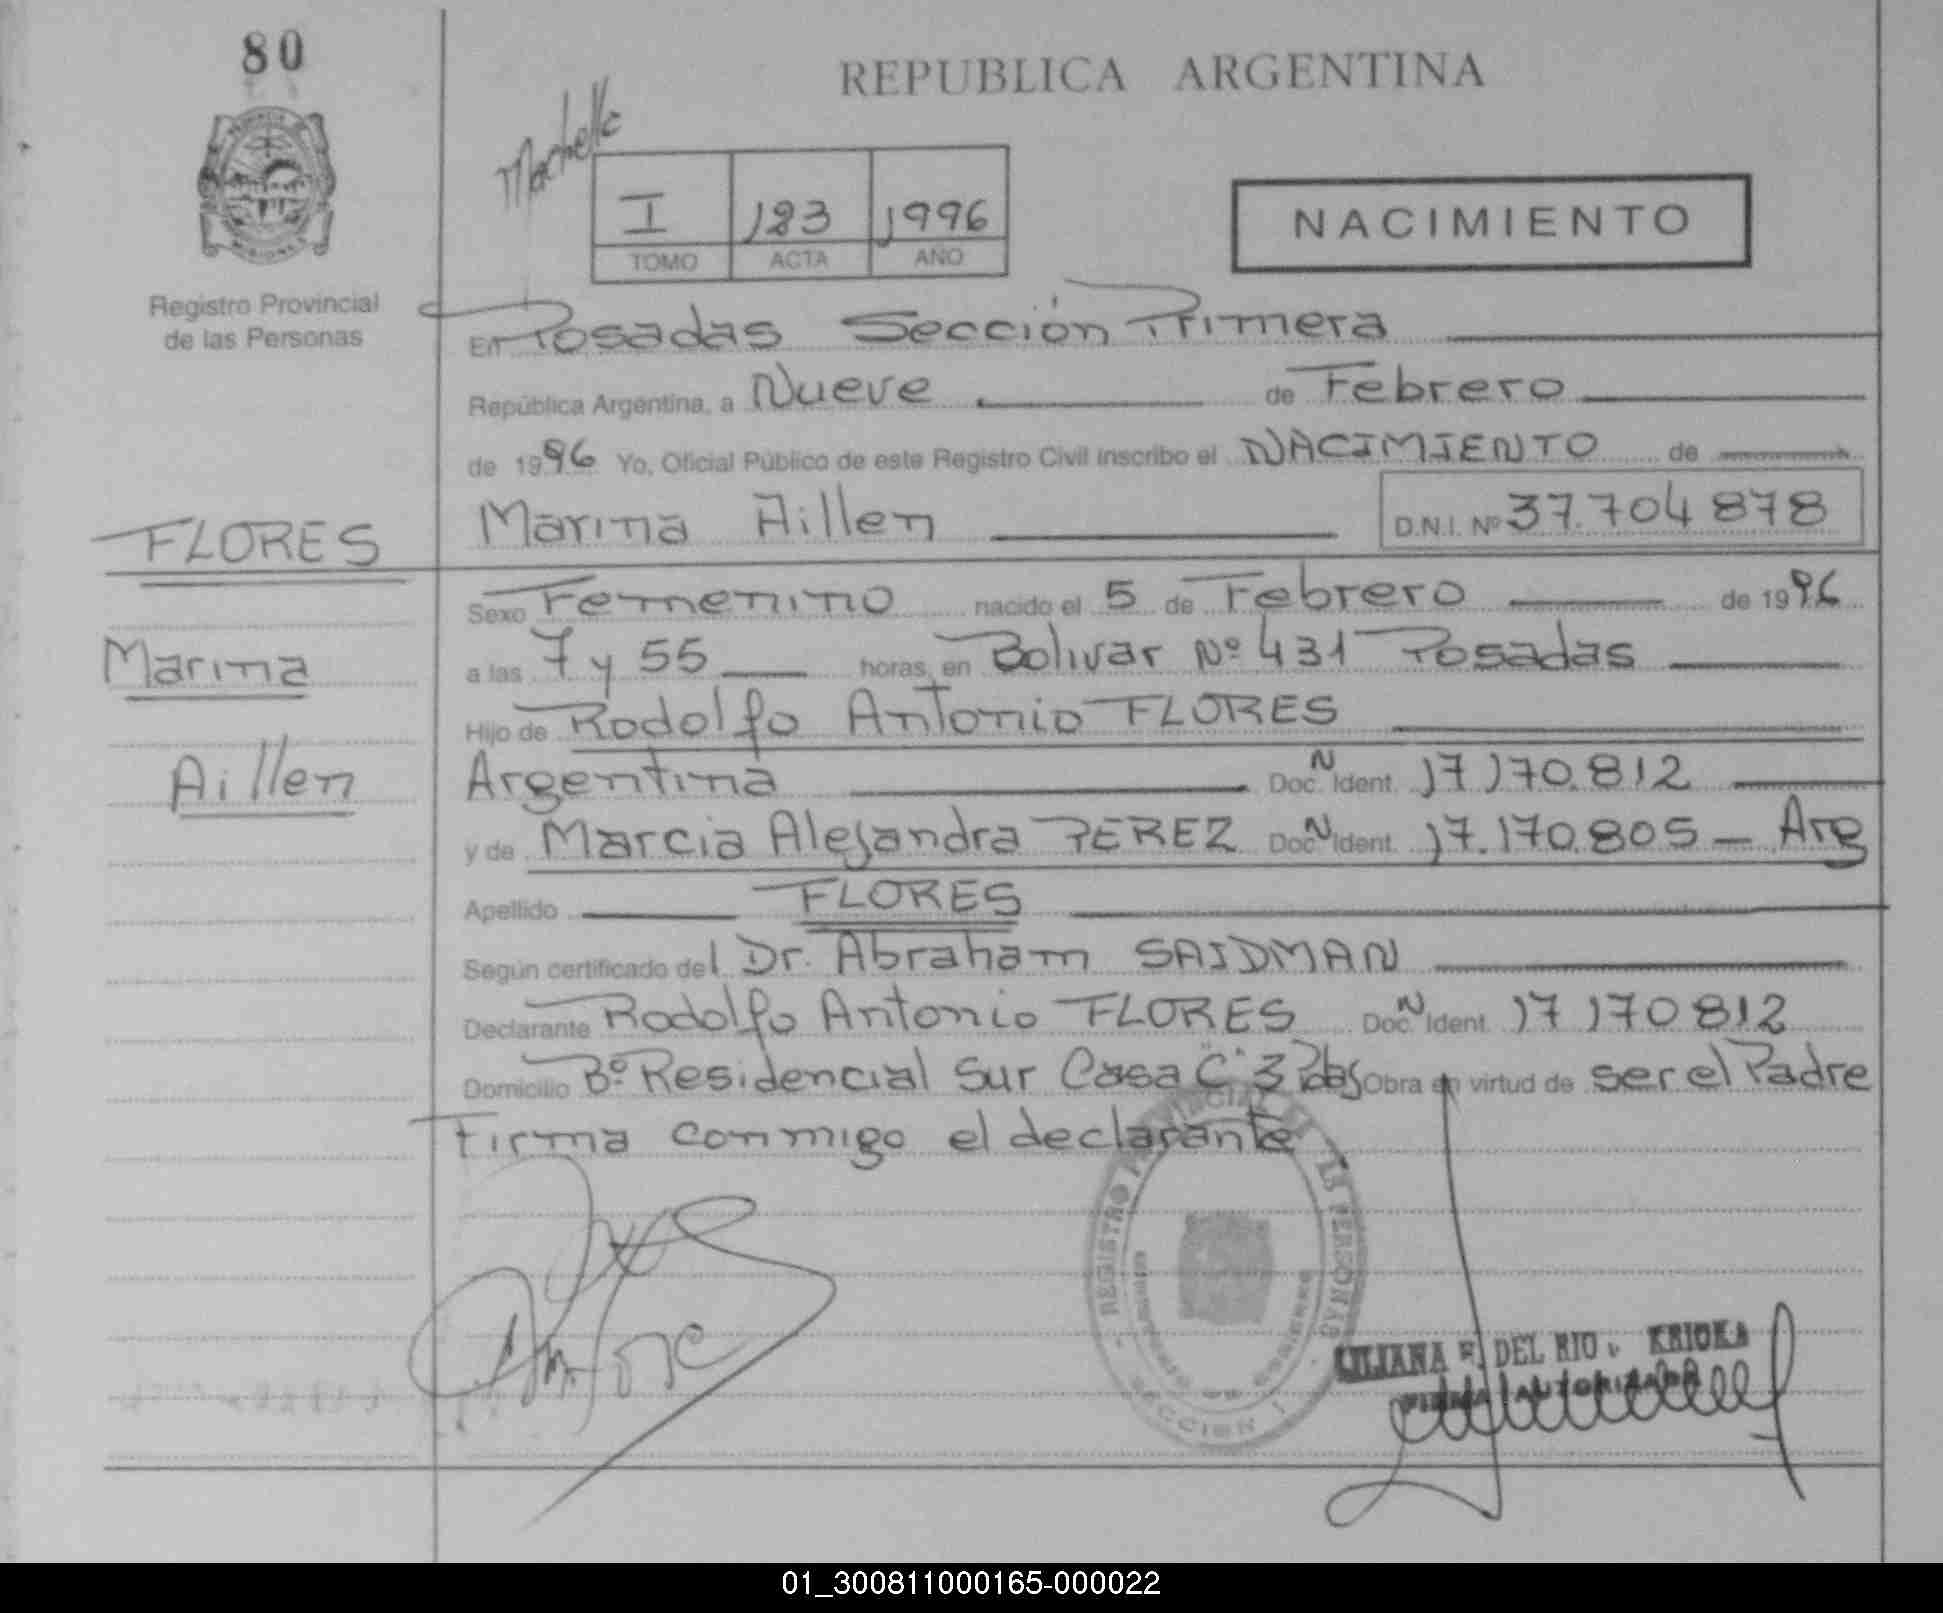 80
REPUBLICA ARGENTINA
I 123 1996
TOMO ACTA AÑO
NACIMIENTO
Registro Provincial
de las Personas
En Posadas Sección Primera
República Argentina, a Nueve de Febrero
de 1996 Yo, Oficial Público de este Registro Civil inscribo el NACIMIENTO de
Marina Aillen D.N.I. Nº 37.704 878
FLORES
Marina
Aillen
Sexo Femenino nacido el 5 de Febrero de 1996
a las 7 y 55 horas, en Bolivar Nº 431 Posadas
Hijo de Rodolfo Antonio FLORES
Argentina Doc. N Ident. 17 170.812
y de Marcia Alejandra PEREZ Doc. N Ident. 17.170.805 - Arg
Apellido FLORES
Según certificado del Dr. Abraham SAIDMAN
Declarante Rodolfo Antonio FLORES Doc. N Ident. 17 170 812
Domicilio Bº Residencial Sur Casa "C" 3 Pdas Obra en virtud de ser el Padre
Firma conmigo el declarante
REGISTRO PROVINCIAL DE LAS PERSONAS
SECCION I
LILIANA F. DEL RIO KRIOKA
FIRMA AUTORIZADA
01_300811000165-000022